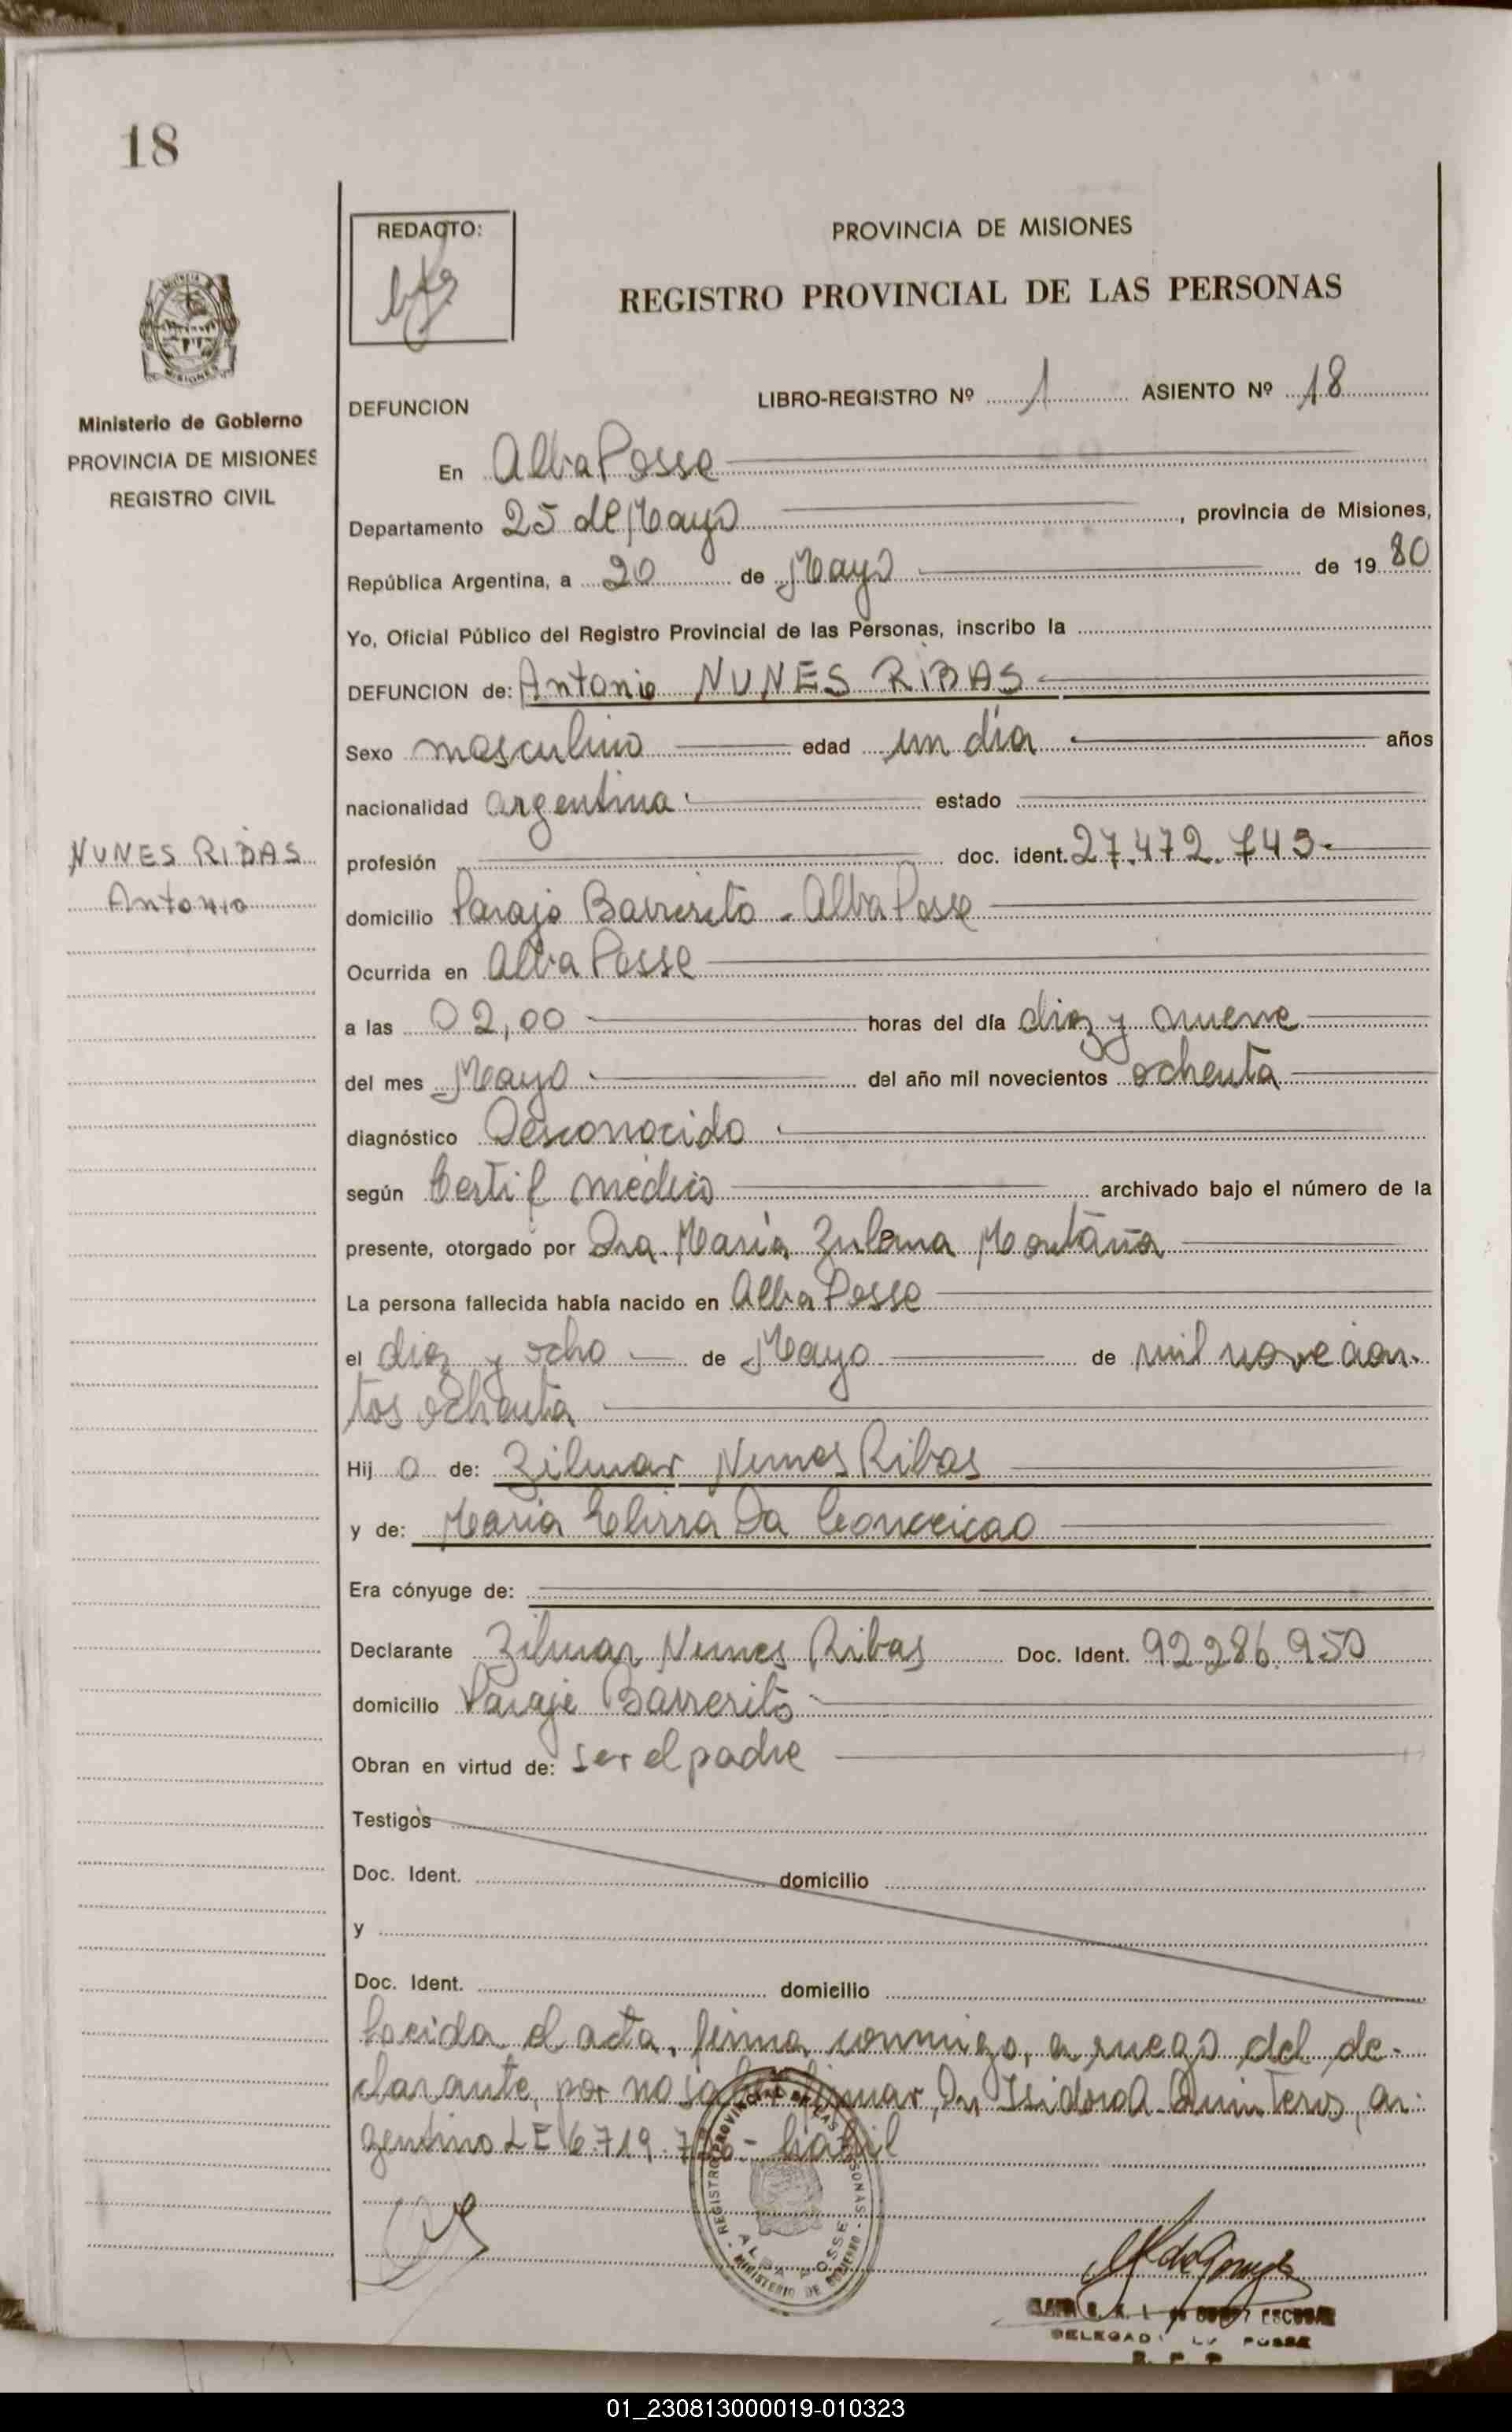 18
REDACTO:
PROVINCIA DE MISIONES
REGISTRO PROVINCIAL DE LAS PERSONAS
MISIONES
Ministerio de Gobierno
PROVINCIA DE MISIONES
REGISTRO CIVIL
DEFUNCION LIBRO-REGISTRO Nº 1 ASIENTO Nº 18
En Alba Posse
Departamento 25 de Mayo, provincia de Misiones,
República Argentina, a 20 de Mayo de 1980
Yo, Oficial Público del Registro Provincial de las Personas, inscribo la
DEFUNCION de: Antonio NUNES RIBAS
Sexo masculino edad un día años
nacionalidad argentina estado
NUNES RIBAS
Antonio
profesión doc. ident. 27.472.743-
domicilio Paraje Barrerito - Alba Posse
Ocurrida en Alba Posse
a las 02,00 horas del día diez y nueve
del mes Mayo del año mil novecientos ochenta
diagnóstico Desconocido
según Certif médico archivado bajo el número de la
presente, otorgado por Dra. María Zulema Montaña
La persona fallecida había nacido en Alba Posse
el diez y ocho de Mayo de mil novecien-
tos ochenta
Hijo de: Zilmar Nunes Ribas
y de: Maria Da Conceicao
Era cónyuge de:
Declarante Zilmar Nunes Ribas Doc. Ident. 92.286.950
domicilio Paraje Barrerito
Obran en virtud de: ser el padre
Testigos
Doc. Ident. domicilio
y
Doc. Ident. domicilio
el acta, firma conmigo, a ruego del de-
clarante, por no saber firmar, Dn Isidoro A. Quinteros, ar-
gentino LE 6.719. - hábil
REGISTRO PROVINCIAL DE LAS PERSONAS
ALBA POSSE
MINISTERIO DE GOBIERNO
ESCOBAR
DELEGAD POSSE
R. P. P
01_230813000019-010323